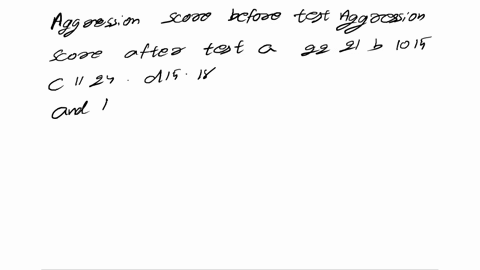 Aggression score before test Aggression
score after test a 22 21 b 10 15
c 11 24 . d 15 . 18
and 1